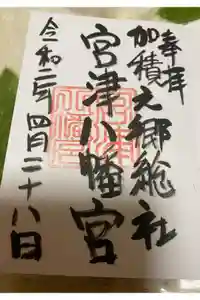 奉拝
加積之郷総社
宮津八幡宮
令和二年四月二十八日